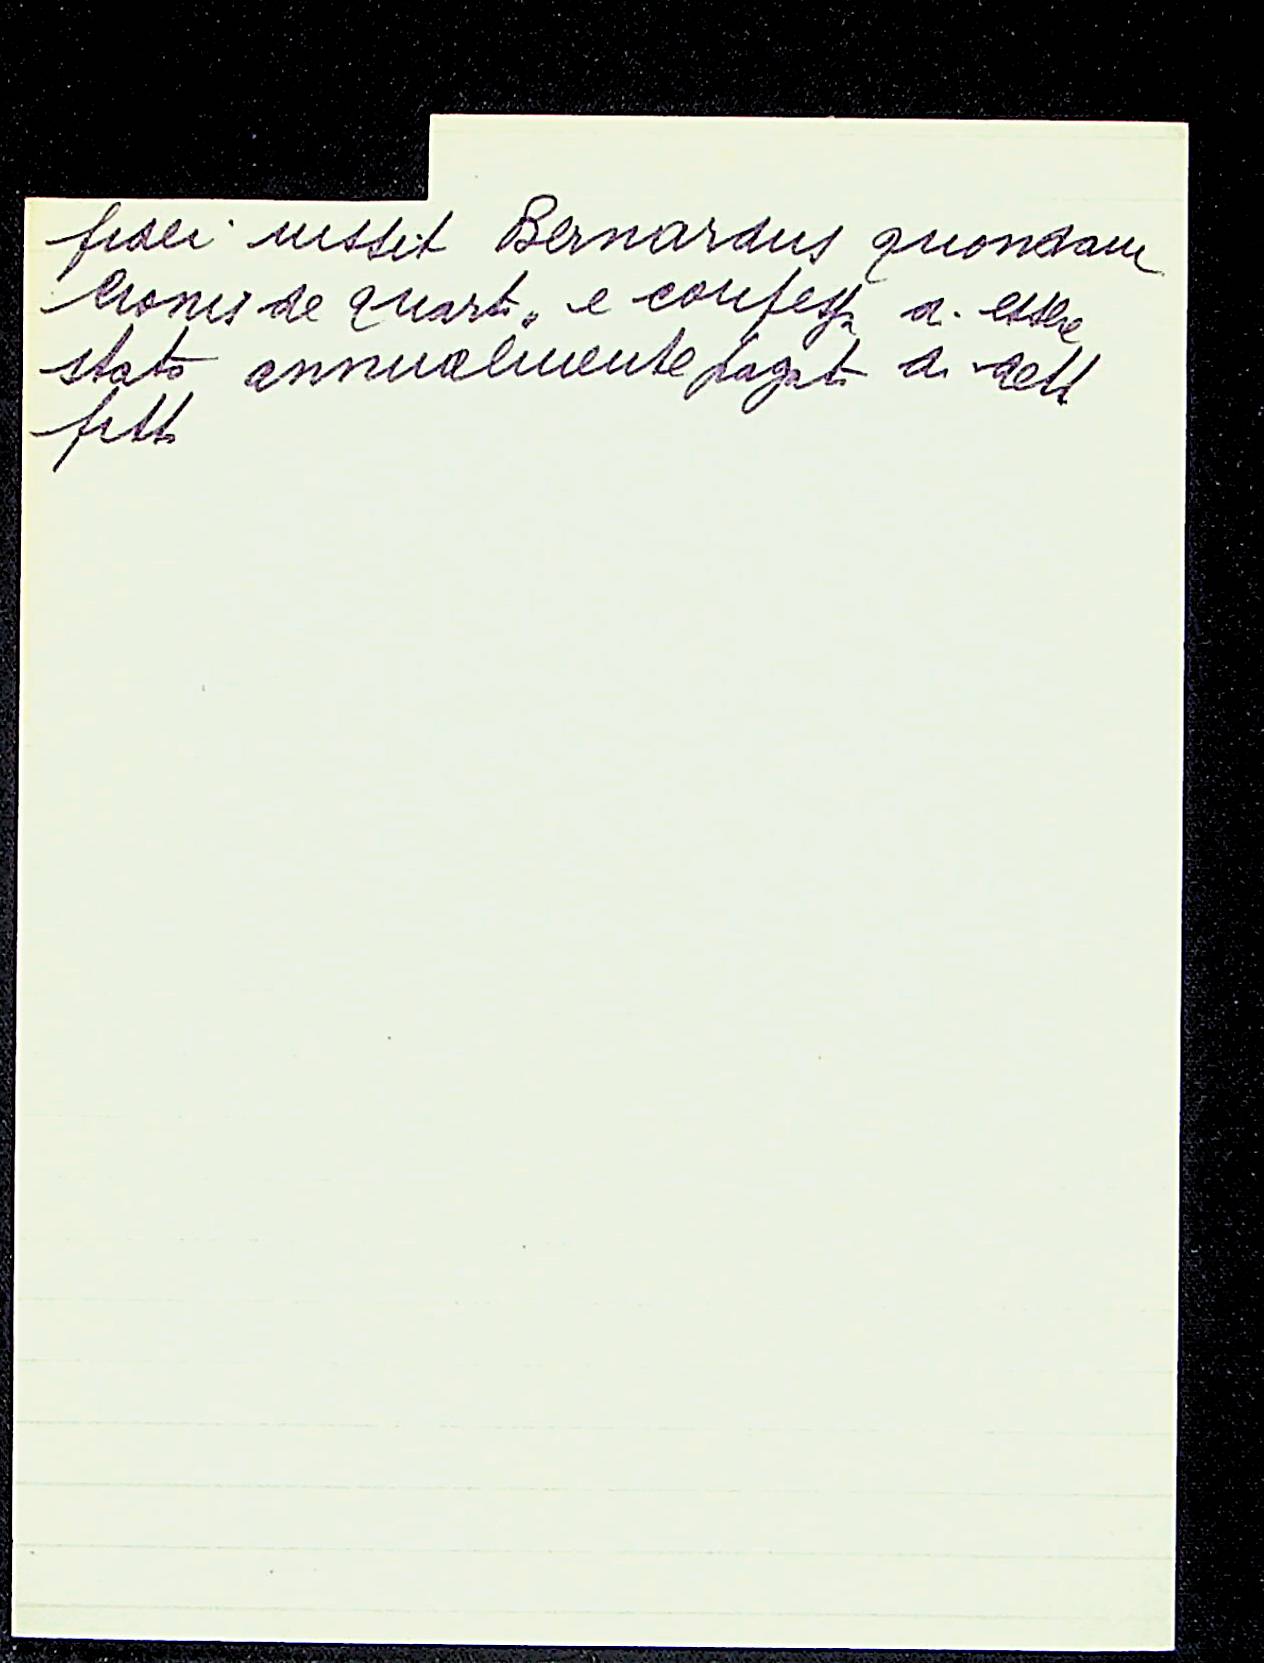 fidei iussit Bernardus quondam
Leonis de quarto e confessa di essere
stato annualmente pagato di detto
fitto